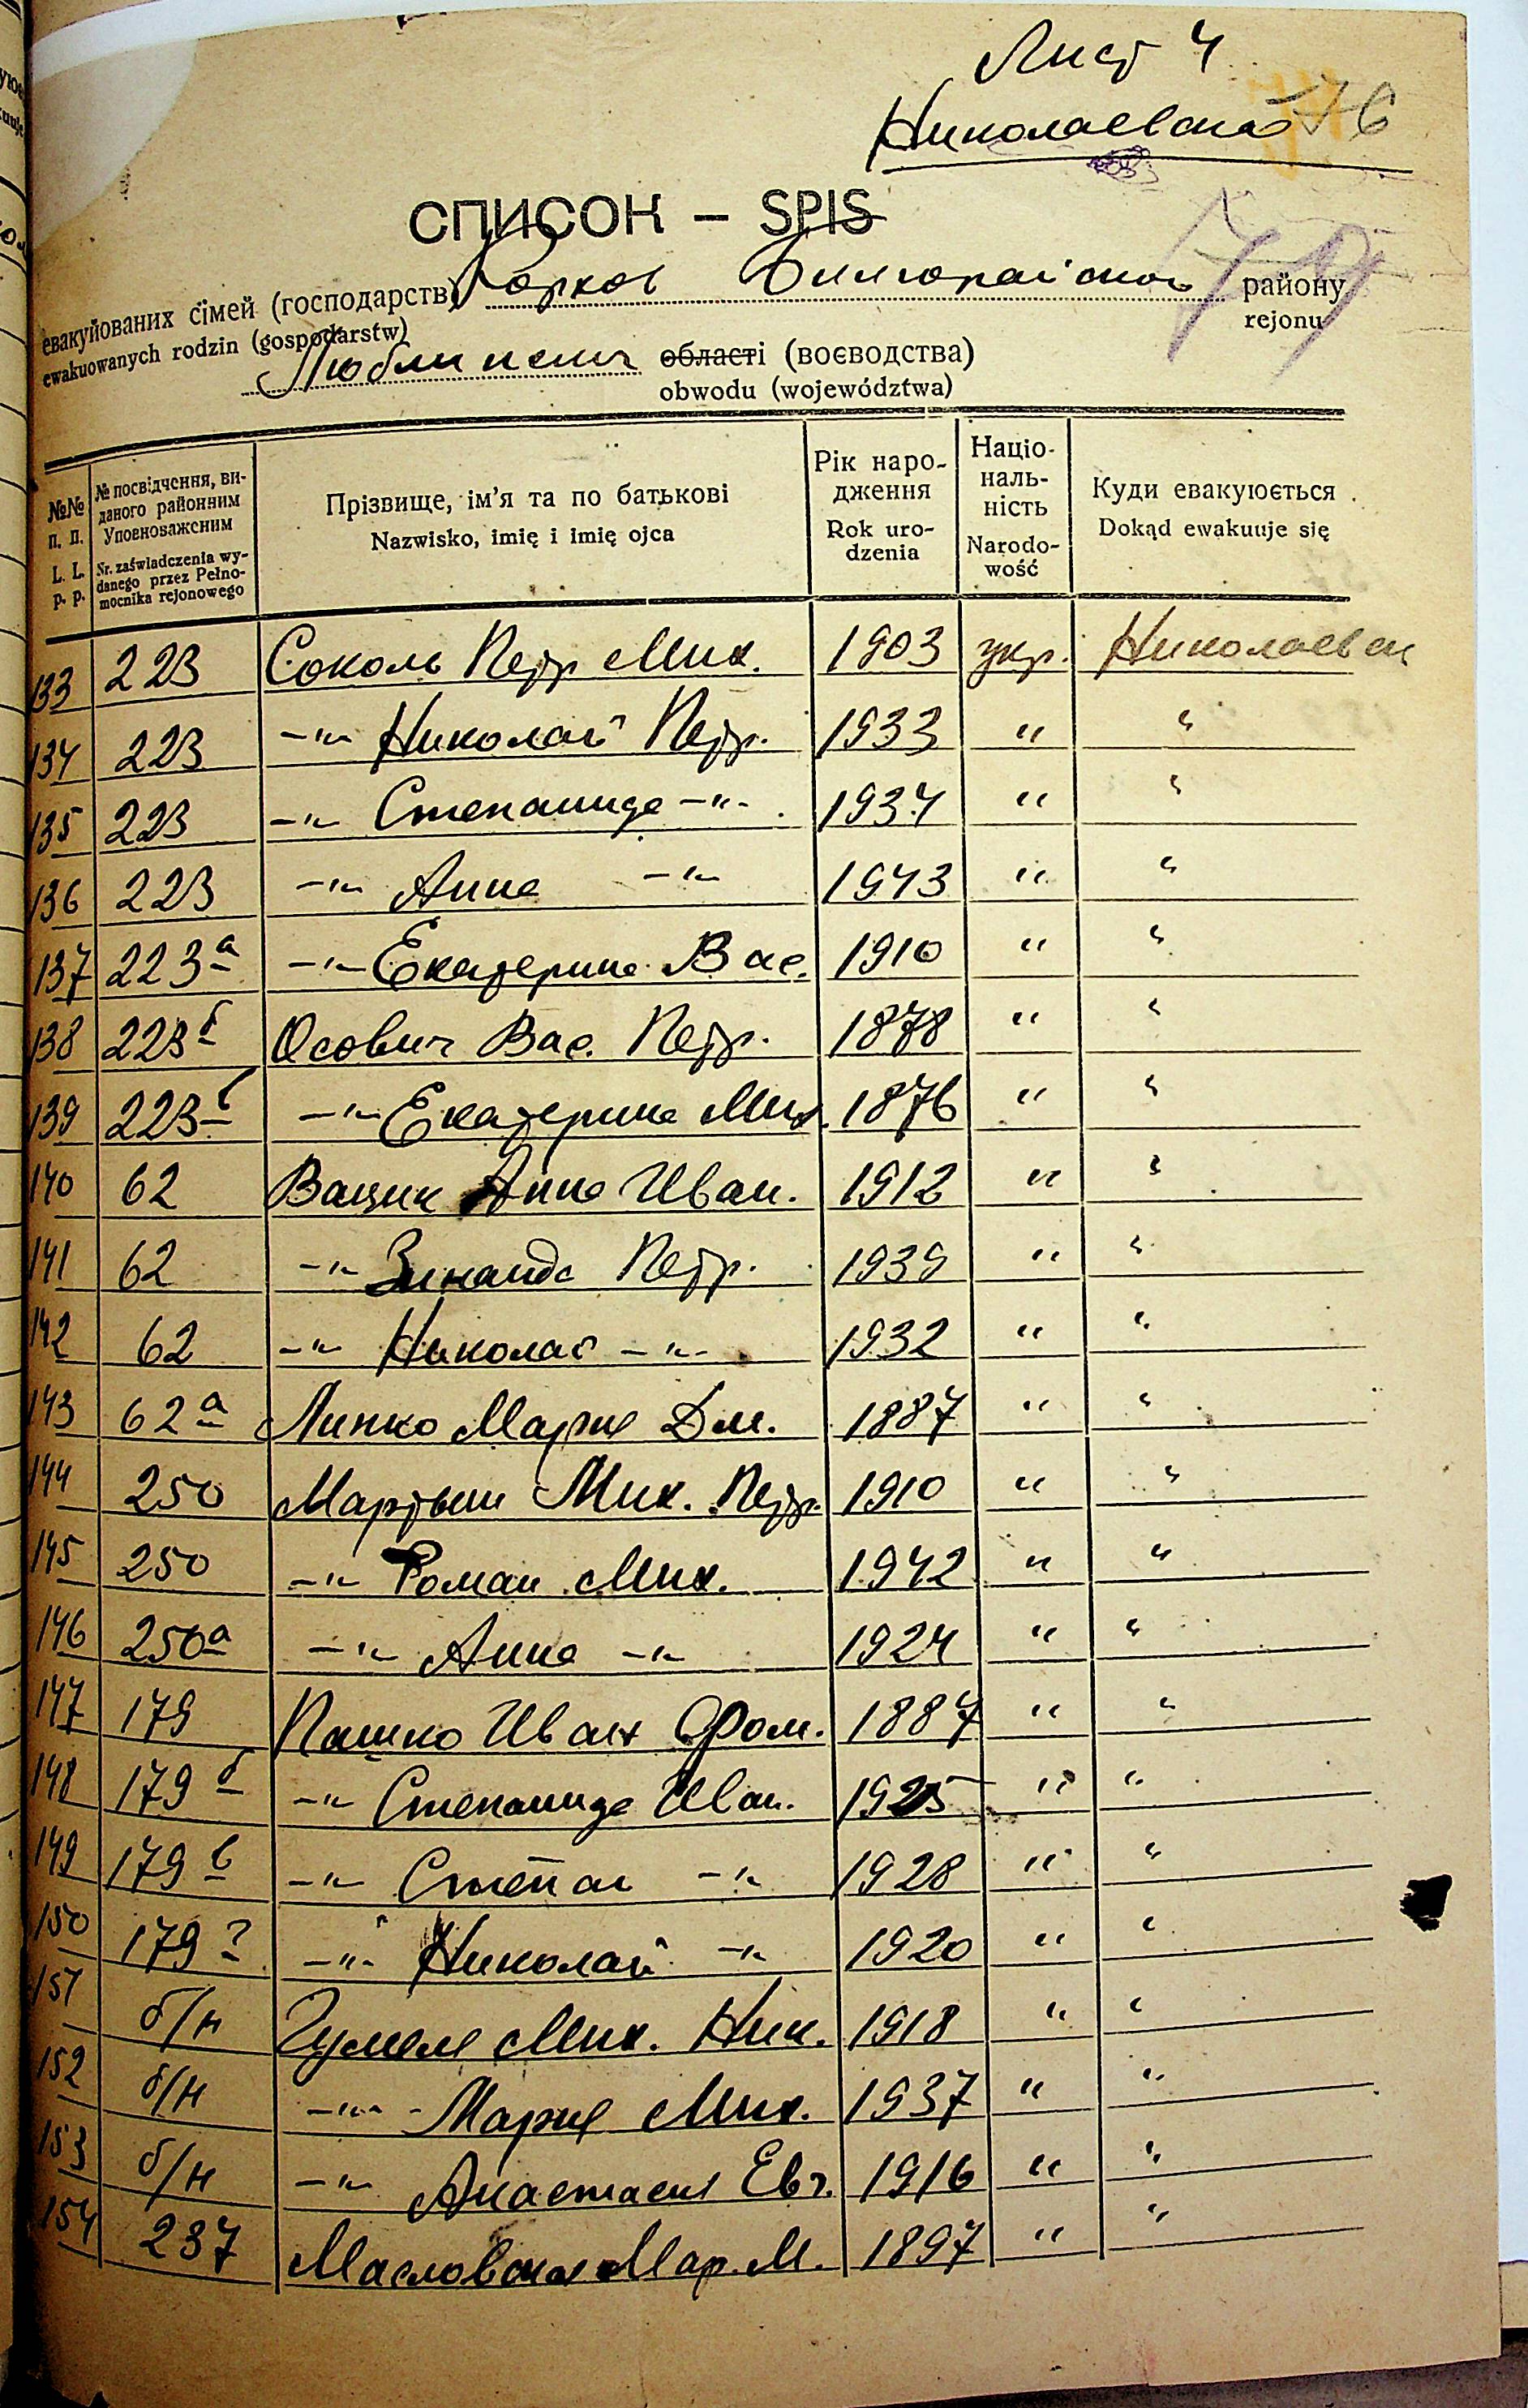 Лист 4
Николаевская 76
79
СПИСОК – SPIS
евакуйованих сімей (господарств) Корков Билгорайского району
ewakuowanych rodzin (gospodarstw) rejonu
Люблинськ області (воєводства)
obwodu (województwa)
№№ п. п. L. L. p. p. | № посвідчення, виданого районним Уповноваженим Nr. zaświadczenia wydanego przez Pełnomocnika rejonowego | Прізвище, ім'я та по батькові Nazwisko, imię i imię ojca | Рік народження Rok urodzenia | Національність Narodowość | Куди евакуюється Dokąd ewakuuje się
133 223 Соколь Петр Мих. 1903 укр. Николаевск
134 223 -"- Николай Петр. 1933 " "
135 223 -"- Степанида -"- 1934 " "
136 223 -"- Анна -"- 1943 " "
137 223а -"- Екатерина Вас. 1910 " "
138 223б Осович Вас. Петр. 1878 " "
139 223в -"- Екатерина Мих. 1876 " "
140 62 Ващик Анна Иван. 1912 " "
141 62 -"- Зинаида Петр. 1939 " "
142 62 -"- Николай -"- 1932 " "
143 62а Липко Мария Дм. 1887 " "
144 250 Мартын Мих. Петр. 1910 " "
145 250 -"- Роман Мих. 1942 " "
146 250а -"- Анна -"- 1924 " "
147 179 Пашко Иван Фом. 1887 " "
148 179б -"- Степанида Иван. 1925 " "
149 179в -"- Степан -"- 1928 " "
150 179г -"- Николай -"- 1920 " "
151 б/н Гумеля Мих. Ник. 1918 " "
152 б/н -"- Мария Мих. 1937 " "
153 б/н -"- Анастасия Евг. 1916 " "
154 237 Масловская Мар. М. 1897 " "